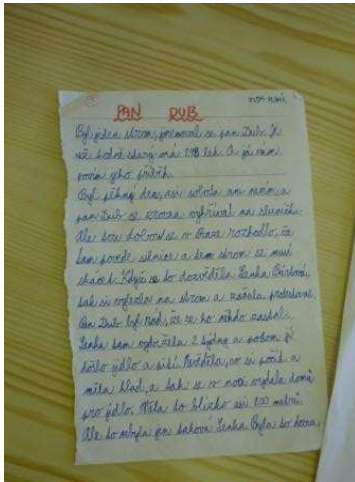 PAN DUB
Byl jeden strom, jmenoval se pan Dub. Je
už hodně starý má 198 let. A já vám
povím jeho příběh.
Byl pěkný den, asi sobota ani nevím, a
pan Dub se zrovna vyhříval na sluníčku.
Ale tou dobou se v Praze rozhodlo, že
tam povede silnice a ten strom se musí
skácet. Když se to dozvěděla Lenka
tak si vylezla na strom a začala protestovat.
Pan Dub byl rád, že se ho někdo zastal.
Lenka tam vydržela 2 týdny a potom jí
došlo jídlo a pití. Nevěděla, co si počít a
měla hlad, a tak se v noci vydala domů
pro jídlo. Měla to blízko asi metrů.
Ale to nebyla jen taková Lenka Byla to